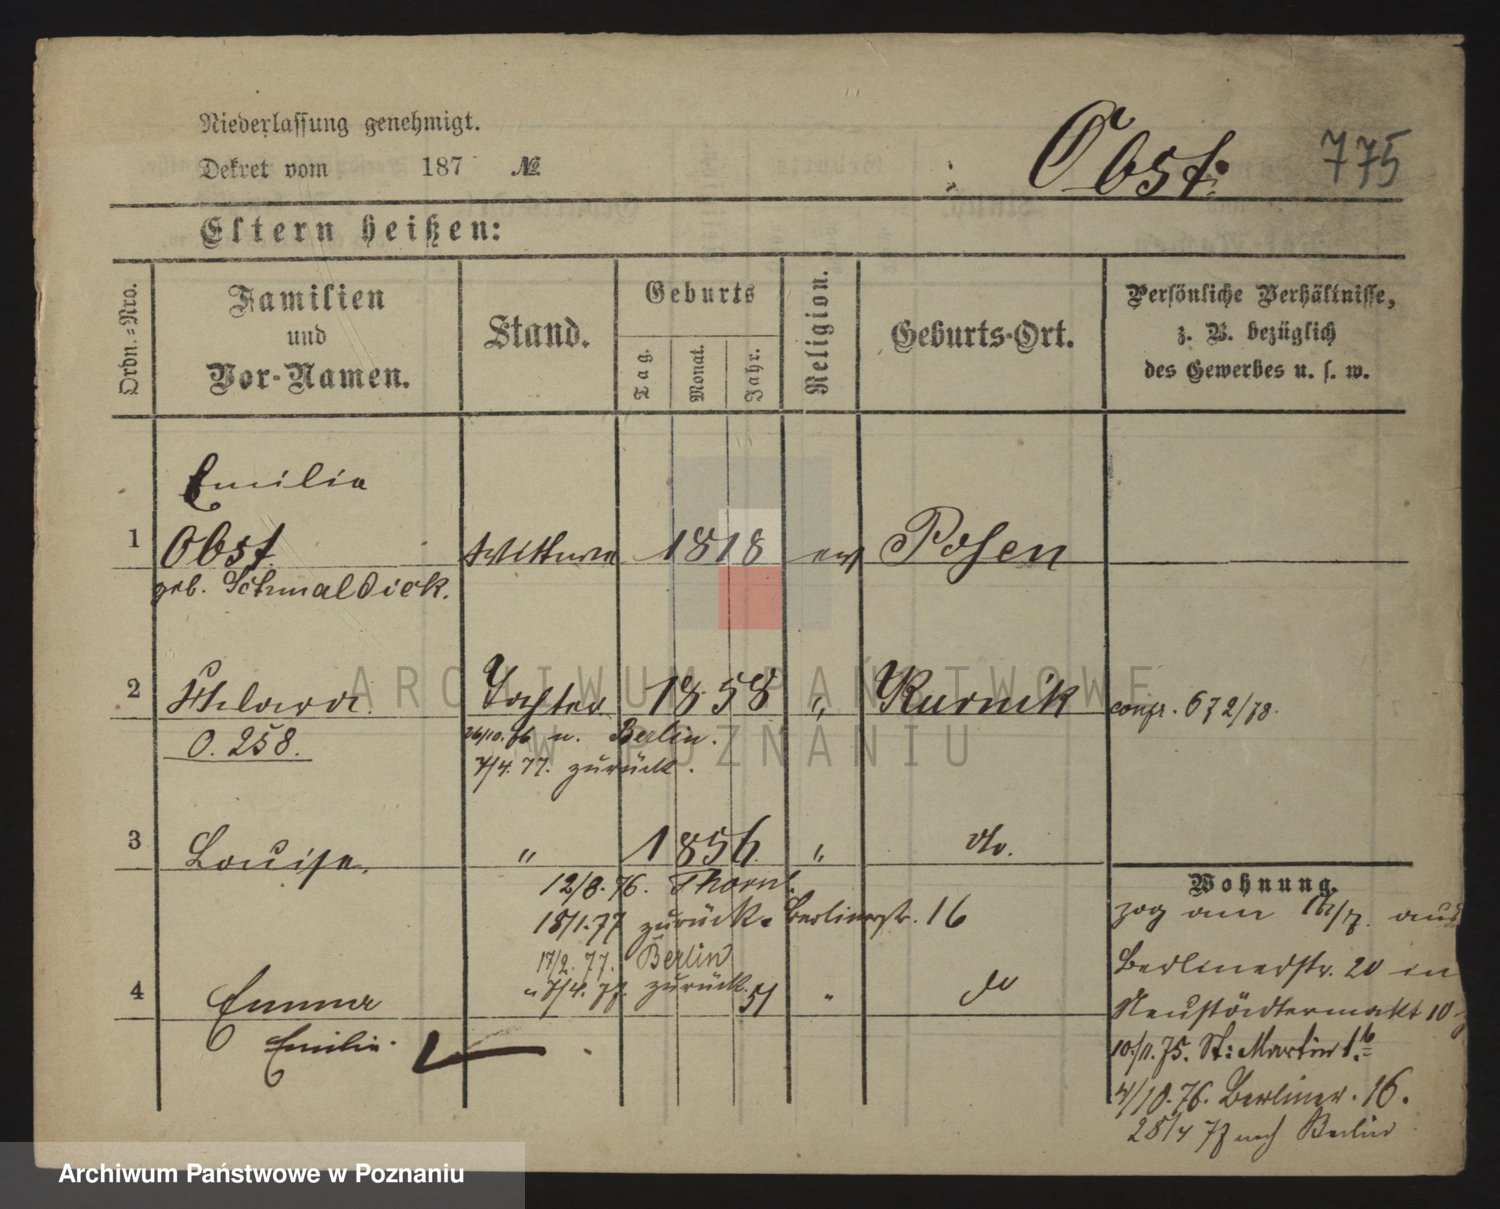 Niederlassung genehmigt.
Dekret vom 187 №
Obst.
775
Eltern heißen:
Ordn.-Nro.
Familien
und
Vor-Namen.
Stand.
Geburts
Tag.
Monat.
Jahr.
Religion.
Geburts-Ort.
Persönliche Verhältnisse,
z. B. bezüglich
des Gewerbes u. s. w.
Emilie
1 Obst Wittwe 1818 ev Posen
geb. Schmaldieck.
2 Tochter 1858 " Kurnik confr. 672/78.
O. 258.
26/10. 76 n. Berlin.
7/4. 77. zurück.
3 Louise. " 1856 " do.
12/8. 76. Thorn.
18/1. 77 zurück. Berlinerstr. 16
17/2. 77. Berlin
7/4. 77. zurück.
4 Emma 51 " do
Emilie.
Wohnung.
zog am aus
Berlinerstr. 20 in
Neustädtermarkt 10
10./11. 75. St: Martin 1.b
4/10. 76. Berliner. 16.
28/4 77 nach Berlin
ARCHIWUM PAŃSTWOWE
W POZNANIU
Archiwum Państwowe w Poznaniu